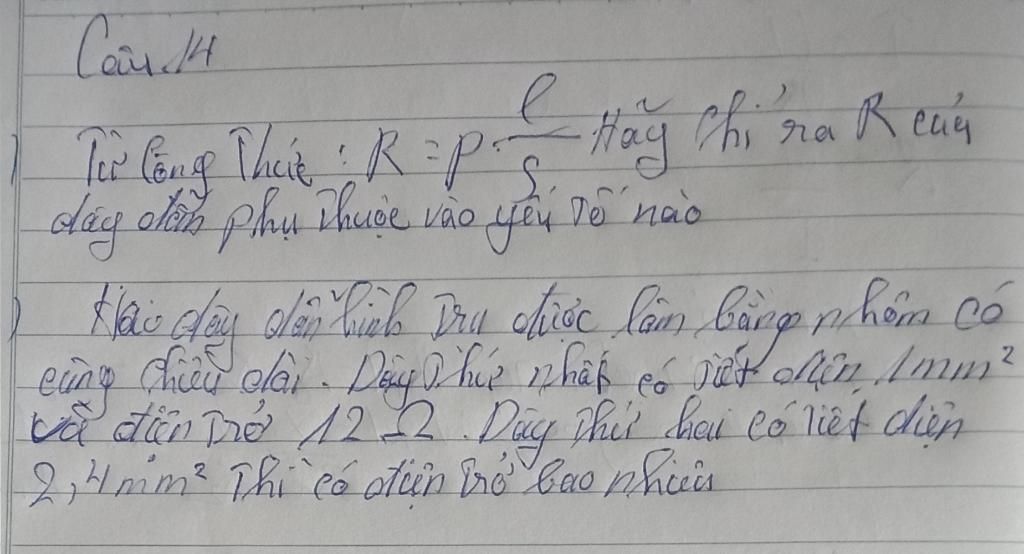 Câu 14
) Từ Công Thức : R = ρ. l/S Hãy chỉ ra R của
dây dẫn phụ Thuộc vào yếu Tố nào
) Hai dây dẫn hình Trụ được làm bằng nhôm có
cùng chiều dài. Dây Thứ nhất có Tiết diện 1mm²
và điện Trở 12 Ω. Dây Thứ hai có Tiết diện
2,4mm² Thì có điện Trở bao nhiêu